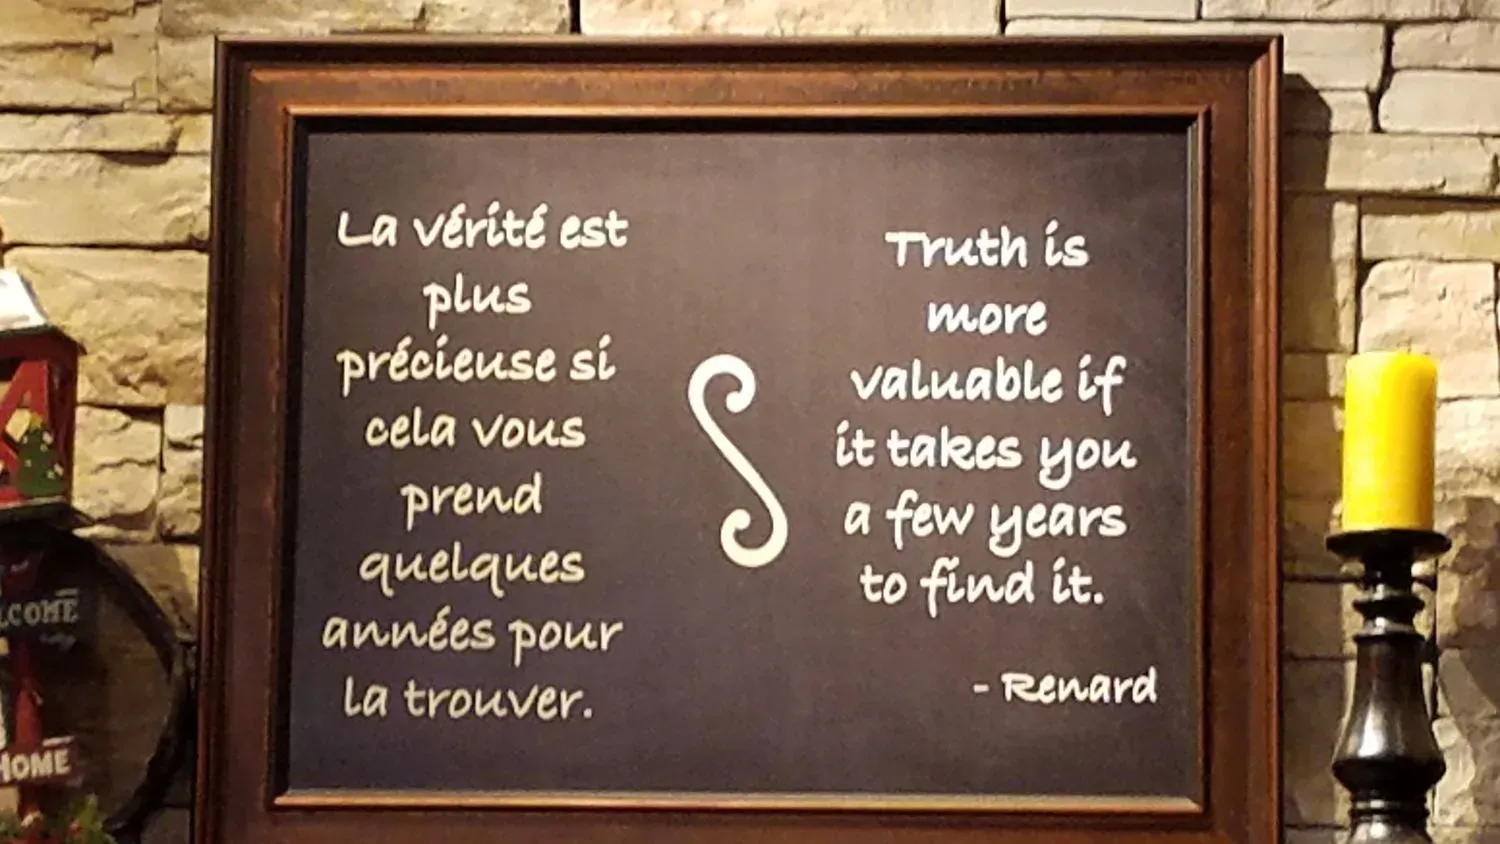 La vérité est
plus
précieuse si
cela vous
prend
quelques
années pour
la trouver.
S
Truth is
more
valuable if
it takes you
a few years
to find it.
- Renard
LCOME
HOME